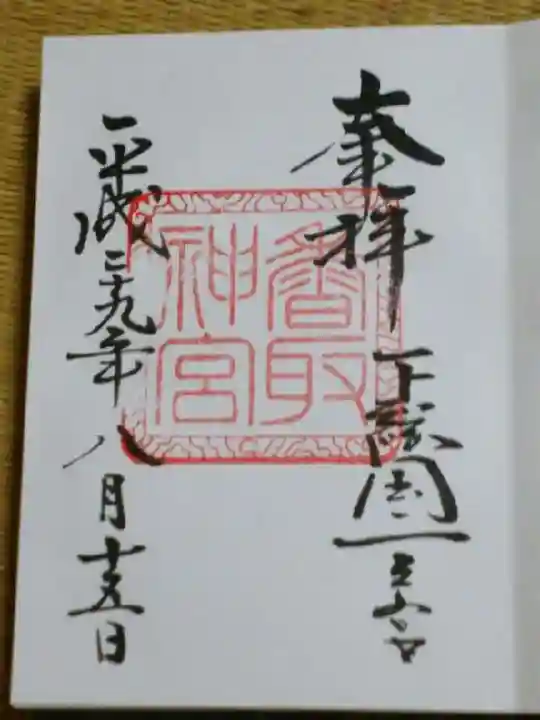 奉拝
下総国一之宮
香取
神宮
平成二十九年八月十五日